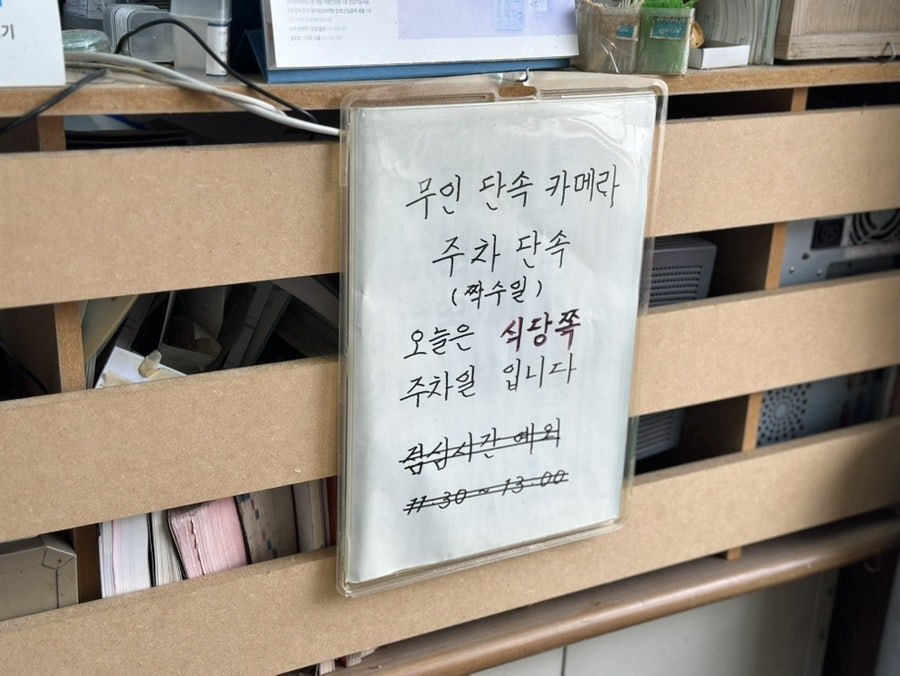 무인 단속 카메라
주차 단속
(짝수일)
오늘은 식당쪽
주차일 입니다
점심시간 예외
11:30 ~ 13:00